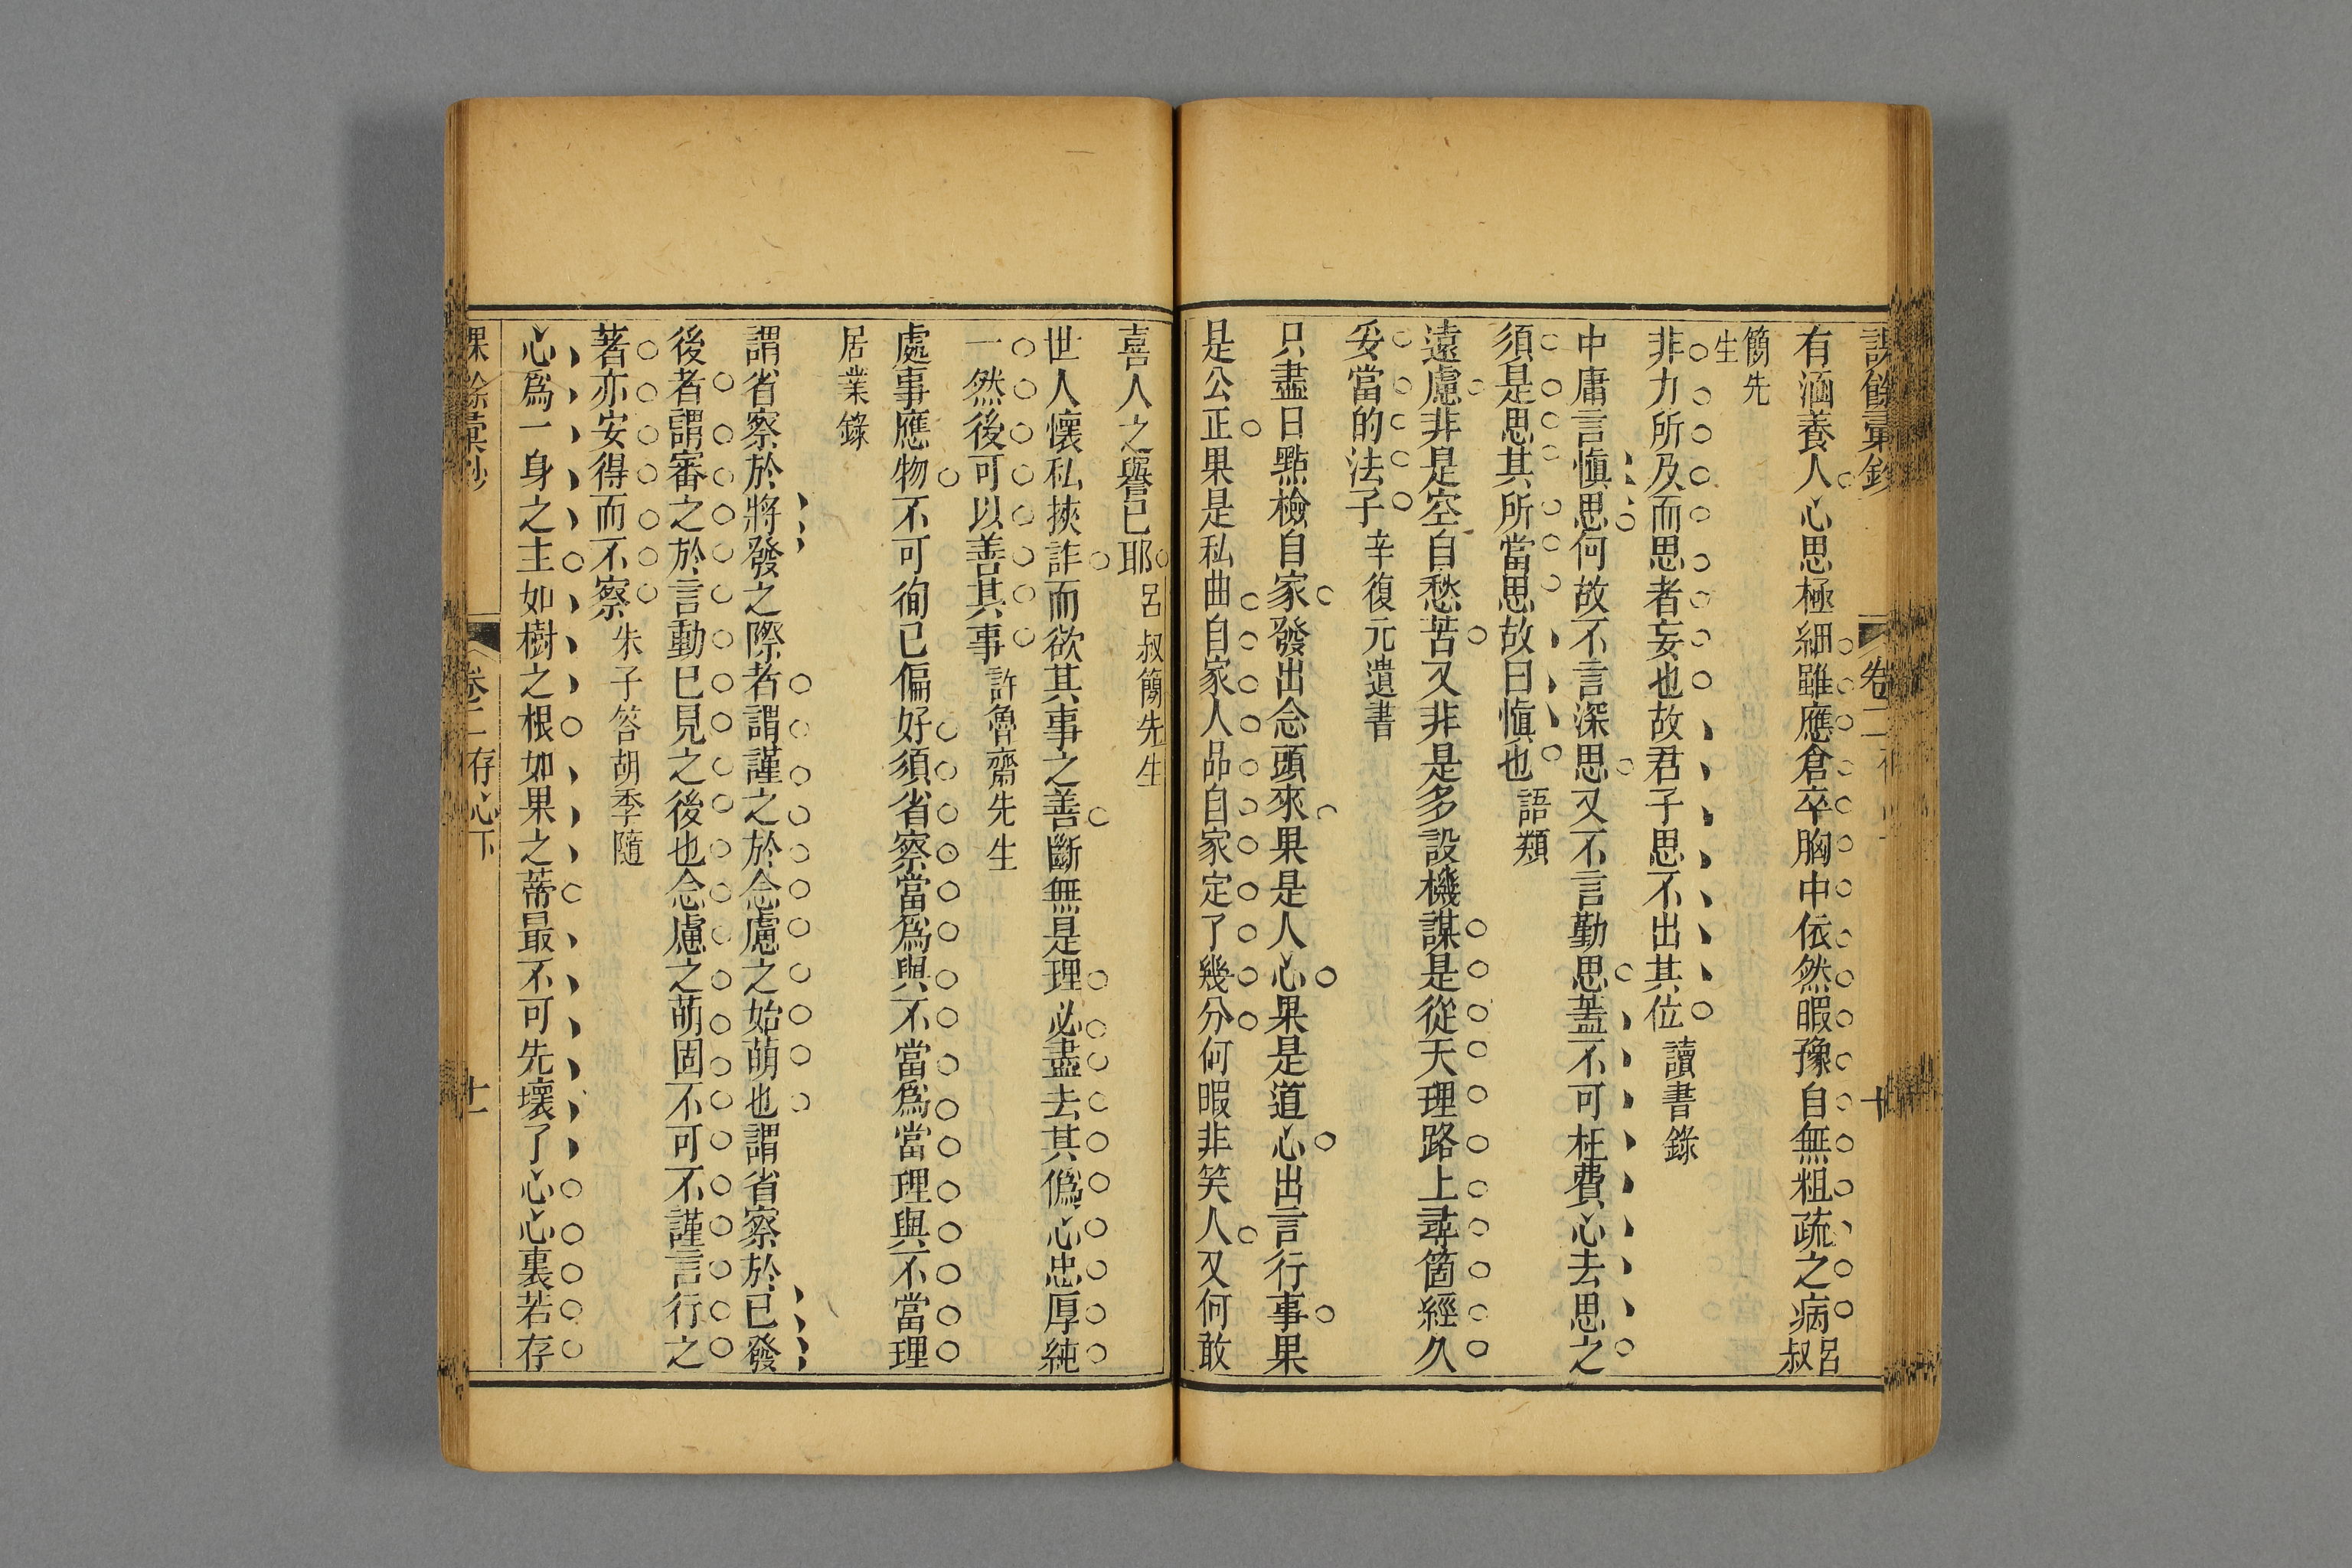 課餘彙鈔 卷二 十
有涵養人心思極細雖應倉卒胸中依然暇豫自無粗疏之病呂叔
簡先生
非力所及而思者妄也故君子思不出其位讀書錄
中庸言愼思何故不言深思又不言勤思蓋不可枉費心去思之
須是思其所當思故曰愼也語類
遠慮非是空自愁苦又非是多設機謀是從天理路上尋箇經久
妥當的法子辛復元遺書
只盡日點檢自家發出念頭來果是人心果是道心出言行事果
是公正果是私曲自家人品自家定了幾分何暇非笑人又何敢
喜人之譽已耶呂叔簡先生
世人懷私挾詐而欲其事之善斷無是理必盡去其僞心忠厚純
一然後可以善其事許魯齋先生
處事應物不可徇已偏好須省察當爲與不當爲當理與不當理
居業錄
謂省察於將發之際者謂謹之於念慮之始萌也謂省察於已發
後者謂審之於言動已見之後也念慮之萌固不可不謹言行之
著亦安得而不察朱子答胡季隨
心爲一身之主如樹之根如果之蒂最不可先壞了心心裏若存
課餘彙鈔 卷二存心下 十一